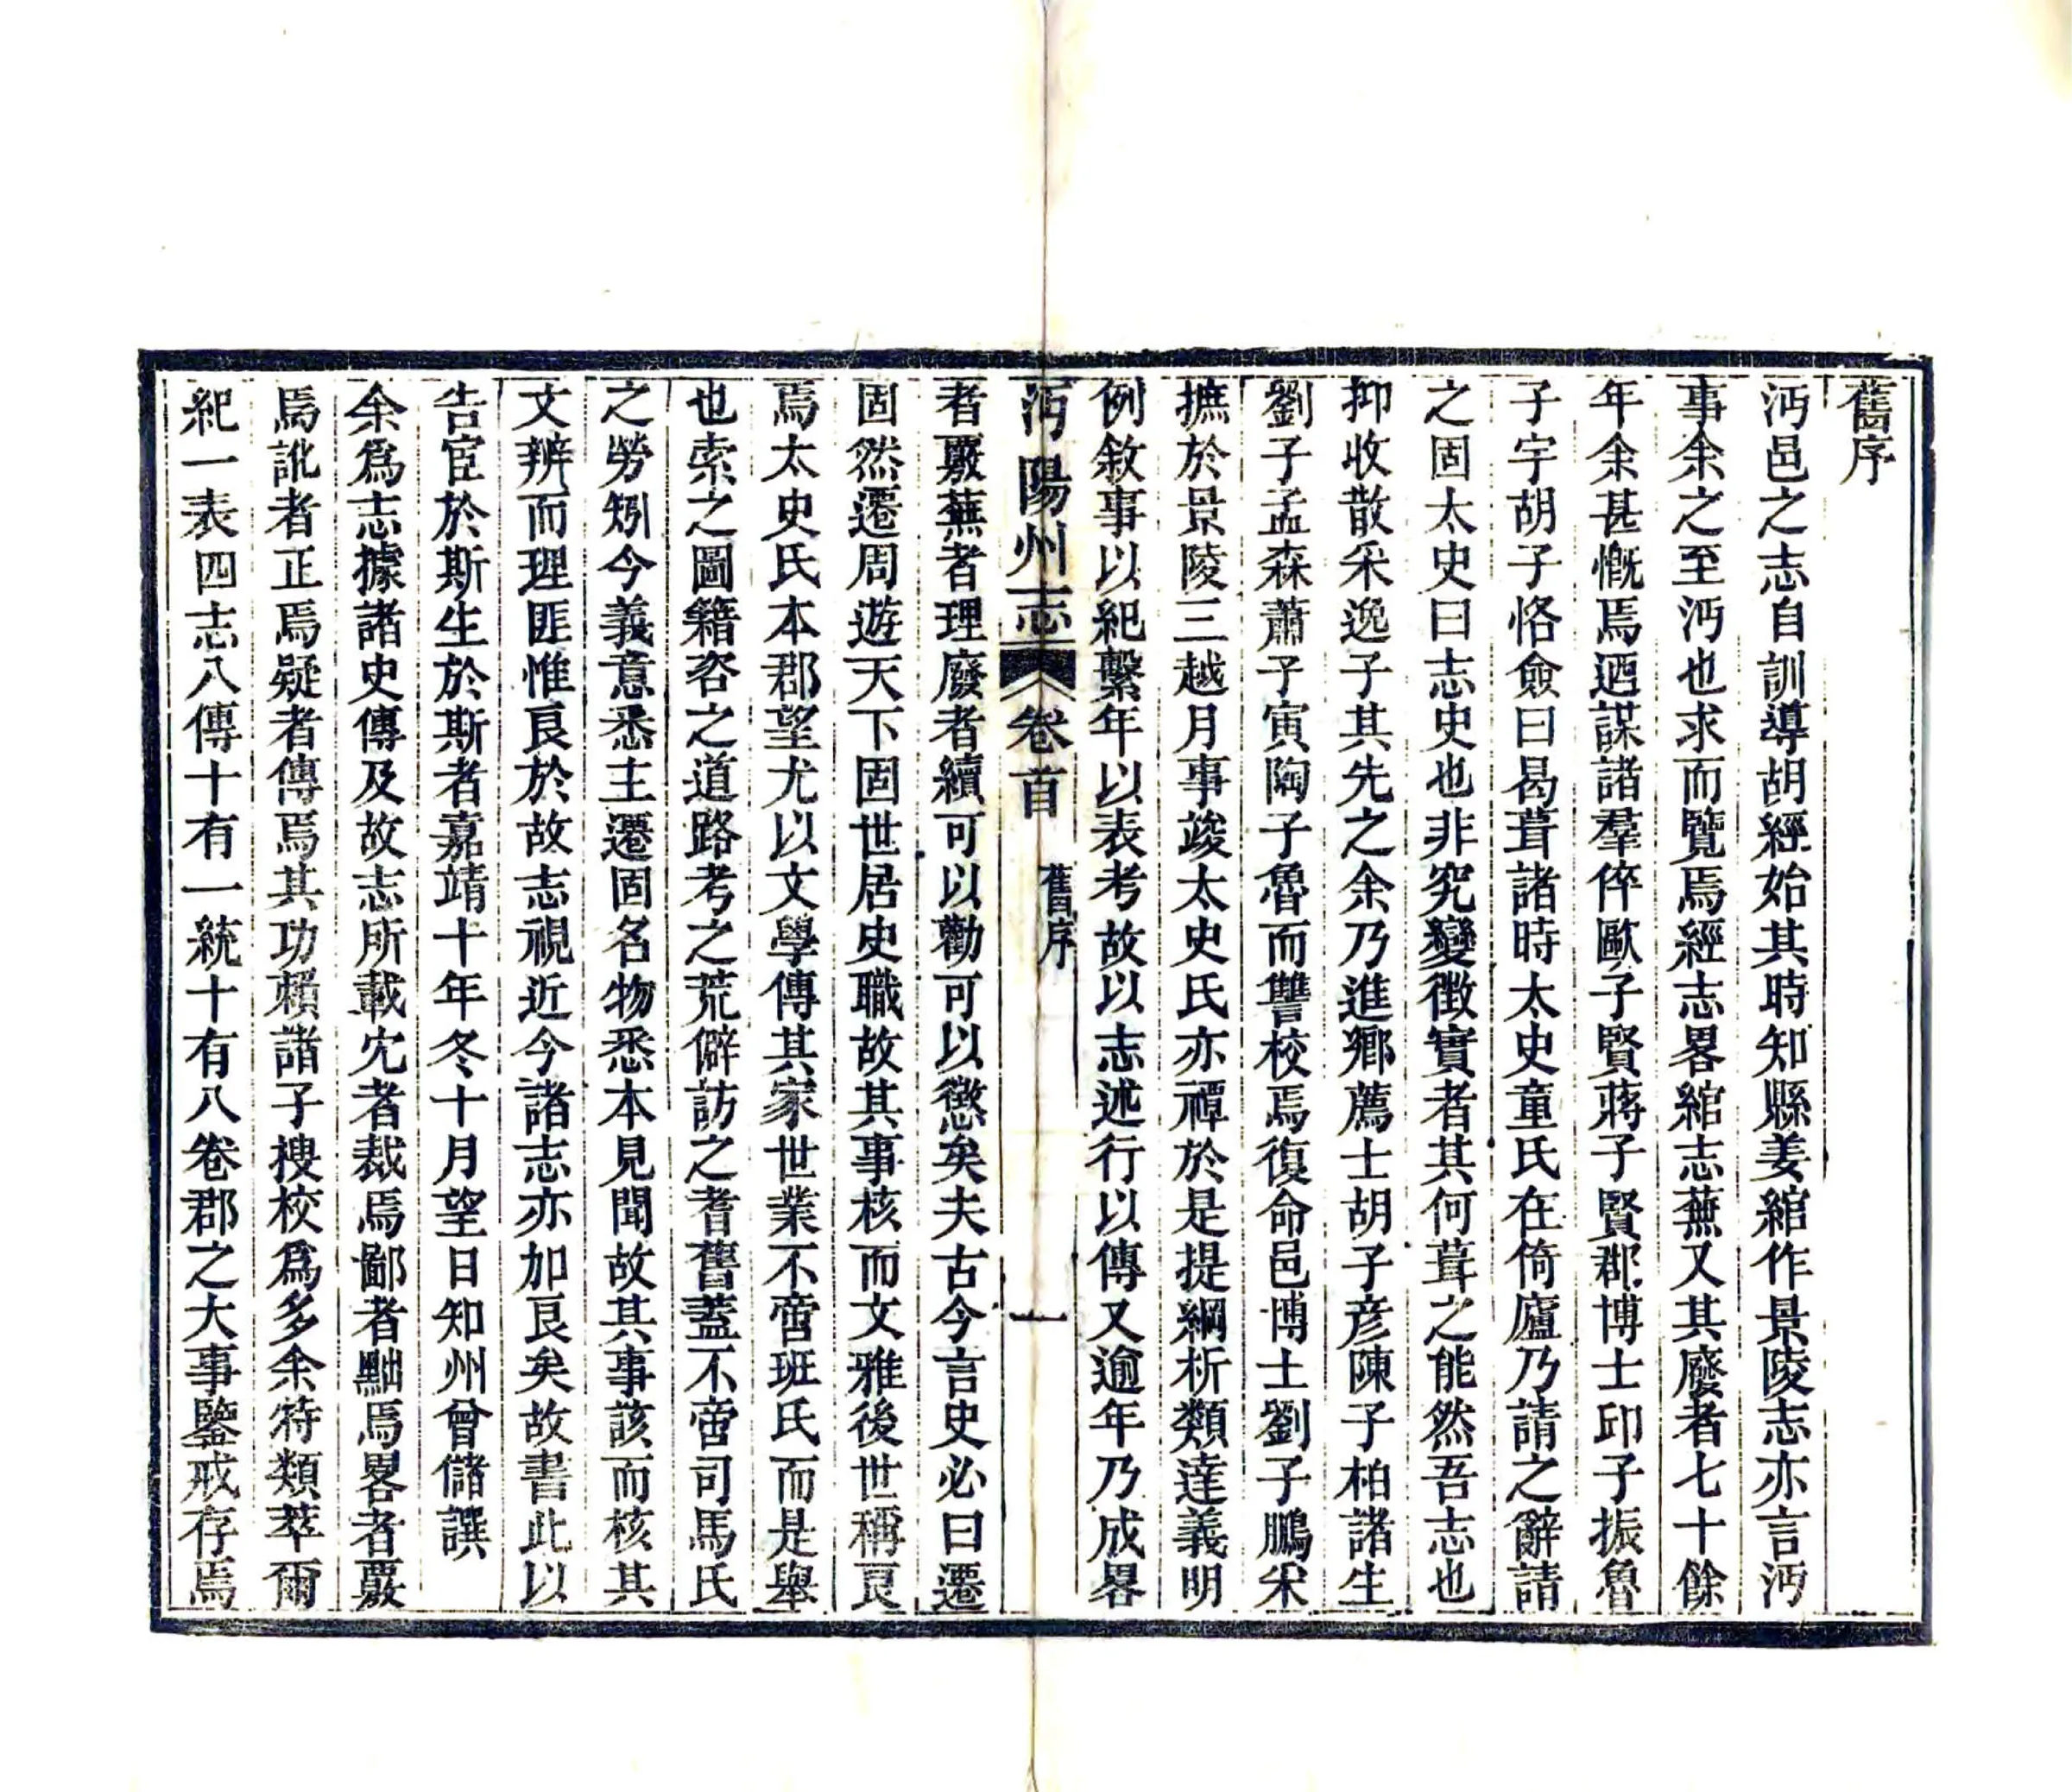 舊序
沔邑之志自訓導胡經始其時知縣姜綰作景陵志亦言沔
事余之至沔也求而覽焉經志畧綰志蕪又其廢者七十餘
年余甚慨焉迺謀諸羣倅歐子賢蔣子賢郡博士邱子振魯
子宇胡子恪僉曰曷葺諸時太史童氏在倚廬乃請之辭請
之固太史曰志史也非究變徵實者其何葺之能然吾志也
抑收散采逸子其先之余乃進鄉薦士胡子彥陳子柏諸生
劉子孟森蕭子寅陶子魯而讐校焉復命邑博士劉子鵬宋
摭於景陵三越月事竣太史氏亦禫於是提綱析類達義明
例敘事以紀繫年以表考故以志述行以傳又逾年乃成畧
沔陽州志 卷首 舊序 一
者覈蕪者理廢者續可以勸可以懲矣夫古今言史必曰遷
固然遷周遊天下固世居史職故其事核而文雅後世稱良
焉太史氏本郡望尤以文學傳其家世業不啻班氏而是舉
也索之圖籍咨之道路考之荒僻訪之耆舊蓋不啻司馬氏
之勞矧今義意悉主遷固名物悉本見聞故其事該而核其
文辨而理匪惟良於故志視近今諸志亦加良矣故書此以
告宦於斯生於斯者嘉靖十年冬十月望日知州曾儲譔
余爲志據諸史傳及故志所載宂者裁焉鄙者黜焉畧者覈
焉訛者正焉疑者傳焉其功賴諸子搜校爲多余符類萃爾
紀一表四志八傳十有一統十有八卷郡之大事鑒戒存焉